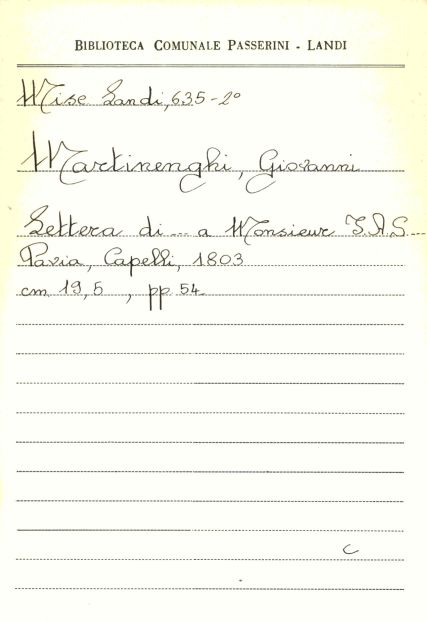 BIBLIOTECA COMUNALE PASSERINI - LANDI
Misc Landi, 635-2°
Martinenghi, Giovanni
Lettera di ... a Monsieur J.A.S...
Pavia, Capelli, 1803
cm 19,5 , pp 54
C